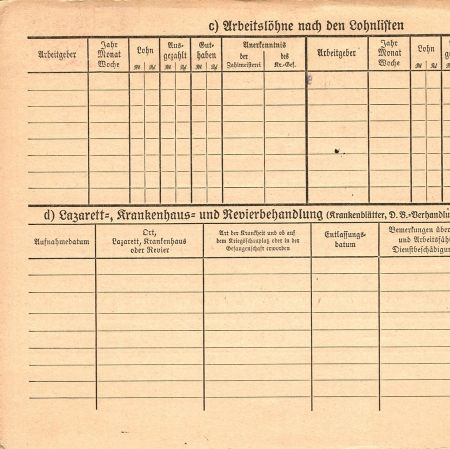 c) Arbeitslöhne nach den Lohnlisten
Arbeitgeber
Jahr
Monat
Woche
Lohn
Aus-
gezahlt
Gut-
haben
Anerkenntnis
der
Zahlmeisterei
des
Kr.-Gef.
Arbeitgeber
Jahr
Monat
Woche
Lohn
d) Lazarett-, Krankenhaus- und Revierbehandlung (Krankenblätter, D. B.-Verhandlu
Aufnahmedatum
Ort,
Lazarett, Krankenhaus
oder Revier
Art der Krankheit und ob auf
dem Kriegsschauplatz oder in der
Gefangenschaft erworben
Entlassungs-
datum
Bemerkungen über
und Arbeitsfäh
Dienstbeschädigun